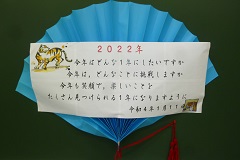 2022年
今年はどんな1年にしたいですか
今年は、どんなことに挑戦しますか
今年も笑顔で、楽しいことを
たくさん見つけられる1年になりますように
令和4年1月11